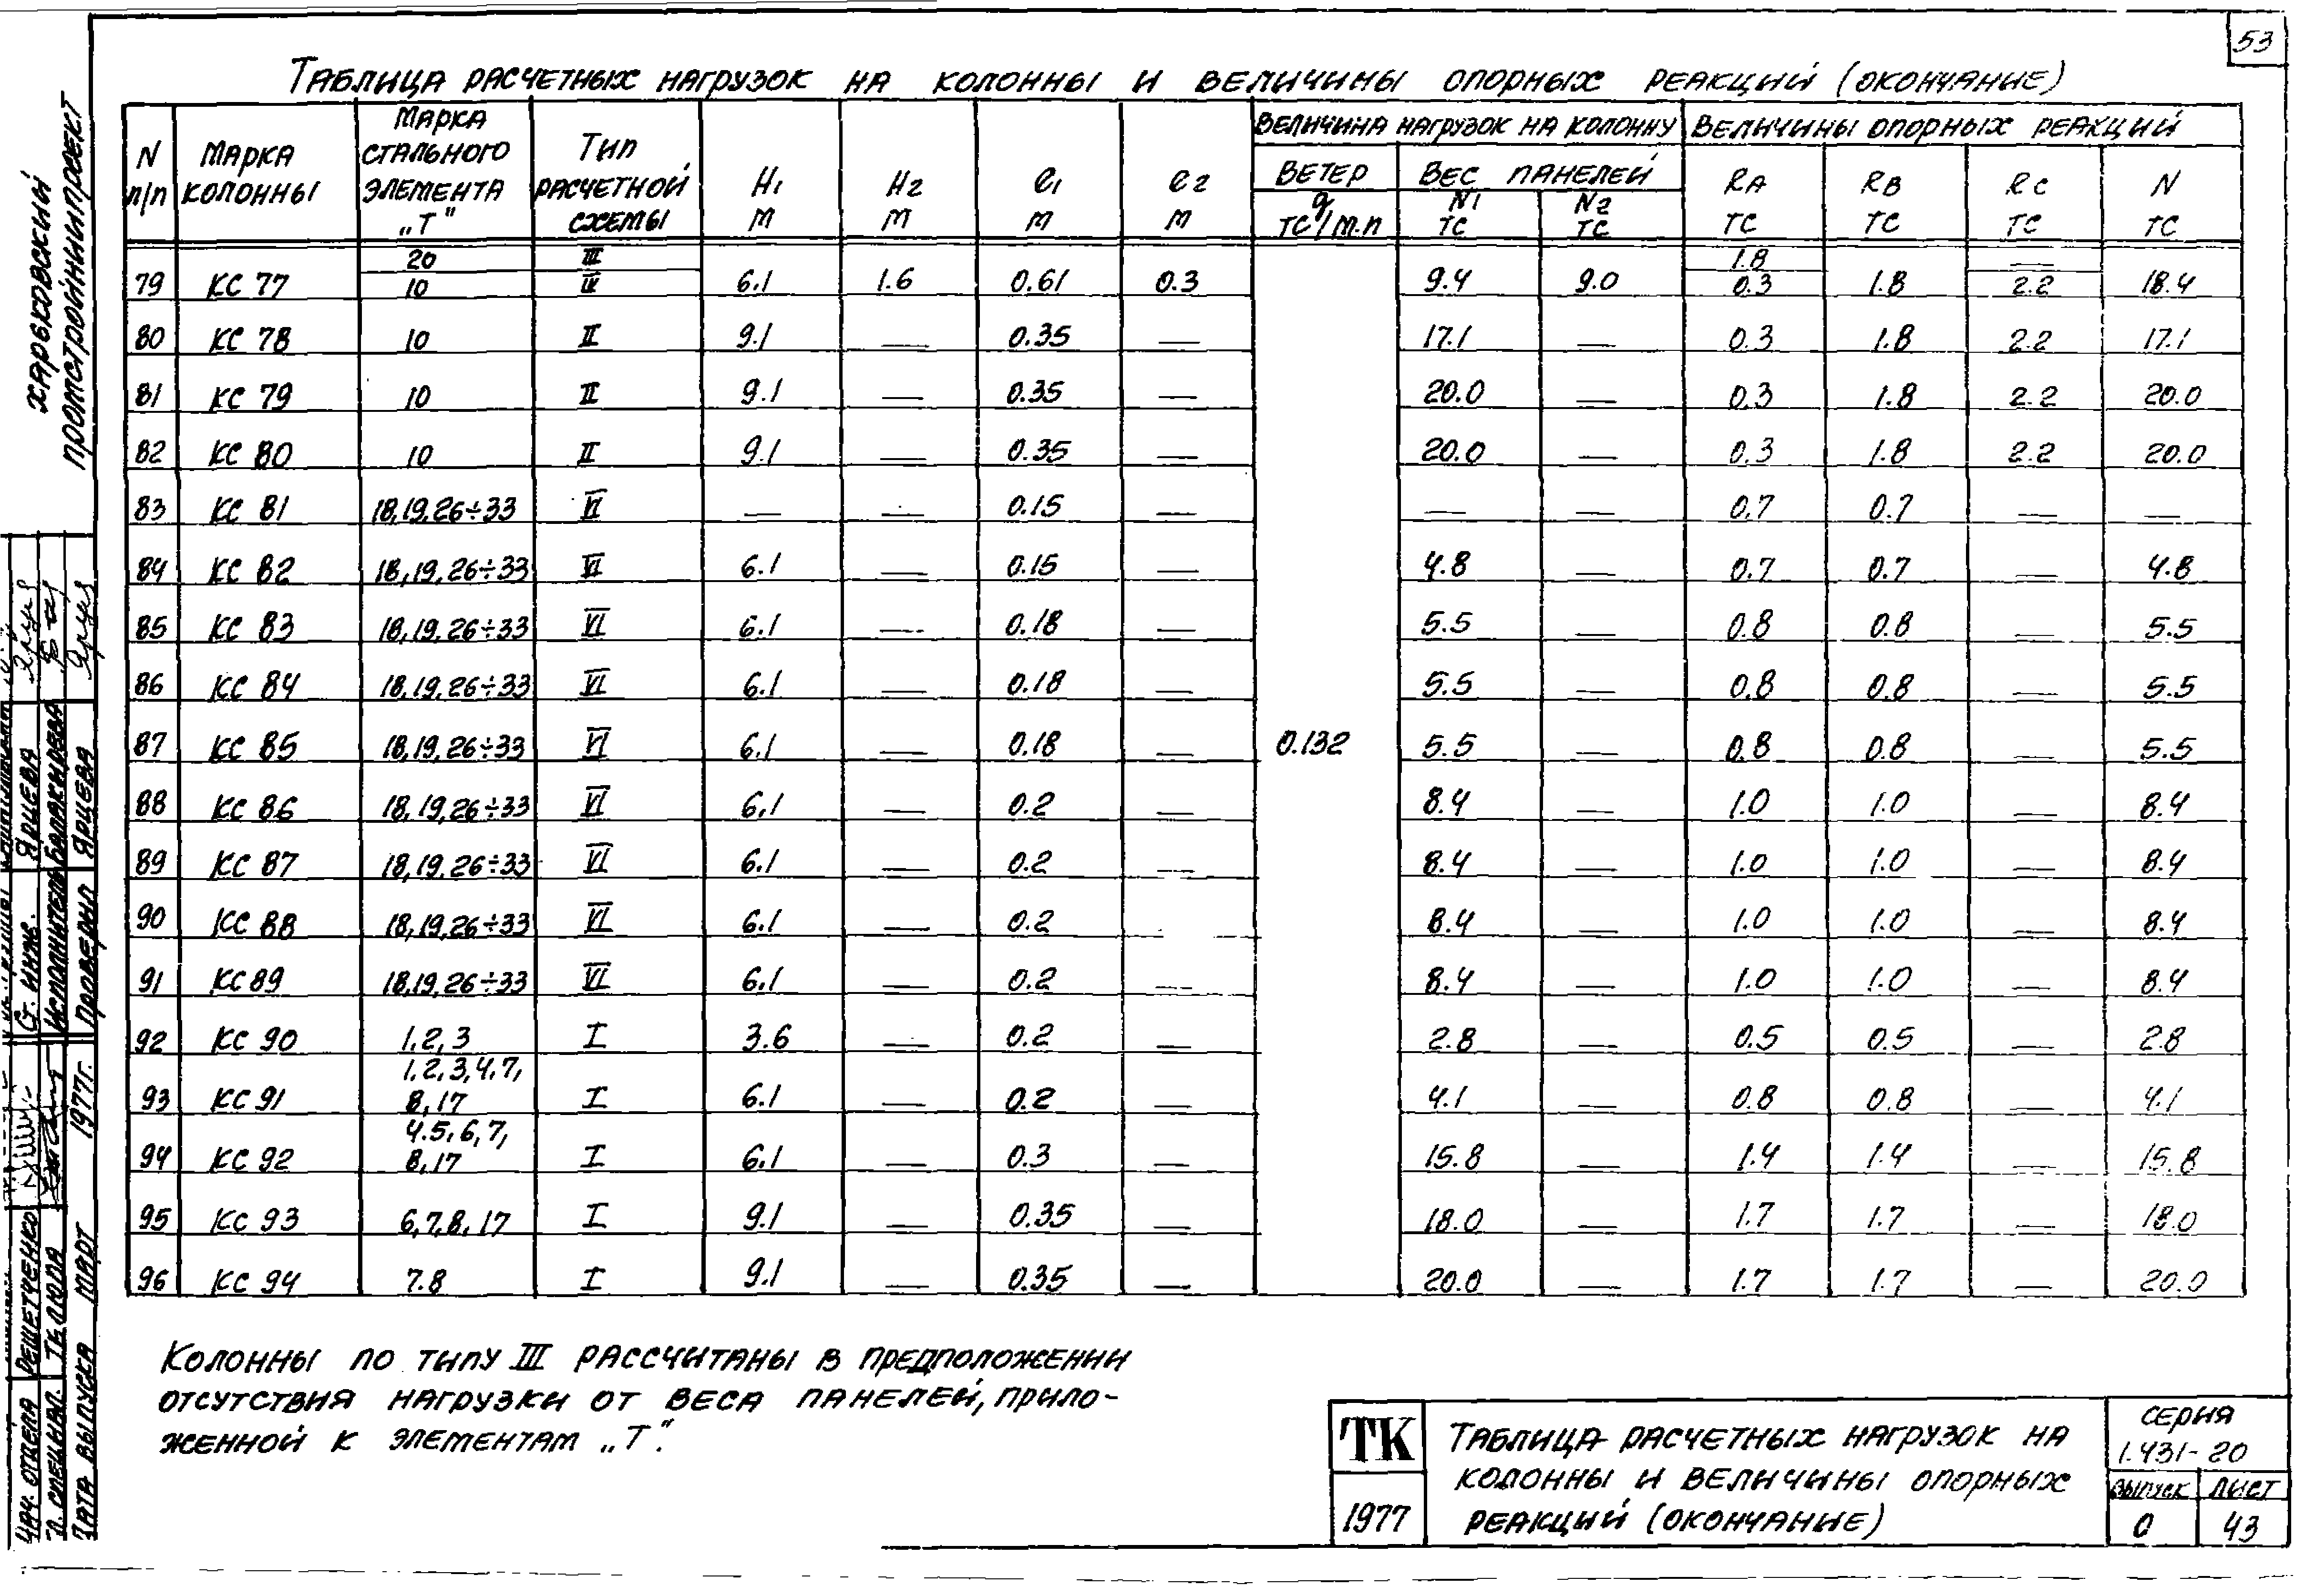 53
Таблица расчетных нагрузок на колонны и величины опорных реакций (окончание)
N п/п | Марка колонны | Марка стального элемента „Т" | Тип расчетной схемы | H1 м | H2 м | e1 м | e2 м | Величина нагрузок на колонну | Величины опорных реакций
Ветер q тс/м.п | Вес панелей | N1 тс | N2 тс | RA тс | RB тс | RC тс | N тс
79 | КС 77 | 20 / 10 | III / IV | 6.1 | 1.6 | 0.61 | 0.3 | 9.4 | 9.0 | 1.8 / 0.3 | 1.8 | — / 2.2 | 18.4
80 | КС 78 | 10 | II | 9.1 | — | 0.35 | — | 17.1 | — | 0.3 | 1.8 | 2.2 | 17.1
81 | КС 79 | 10 | II | 9.1 | — | 0.35 | — | 20.0 | — | 0.3 | 1.8 | 2.2 | 20.0
82 | КС 80 | 10 | II | 9.1 | — | 0.35 | — | 20.0 | — | 0.3 | 1.8 | 2.2 | 20.0
83 | КС 81 | 18,19,26÷33 | VI | — | — | 0.15 | — | — | — | 0.7 | 0.7 | — | —
84 | КС 82 | 18,19,26÷33 | VI | 6.1 | — | 0.15 | — | 4.8 | — | 0.7 | 0.7 | — | 4.8
85 | КС 83 | 18,19,26÷33 | VI | 6.1 | — | 0.18 | — | 5.5 | — | 0.8 | 0.8 | — | 5.5
86 | КС 84 | 18,19,26÷33 | VI | 6.1 | — | 0.18 | — | 5.5 | — | 0.8 | 0.8 | — | 5.5
87 | КС 85 | 18,19,26÷33 | VI | 6.1 | — | 0.18 | — | 0.132 | 5.5 | — | 0.8 | 0.8 | — | 5.5
88 | КС 86 | 18,19,26÷33 | VI | 6.1 | — | 0.2 | — | 8.4 | — | 1.0 | 1.0 | — | 8.4
89 | КС 87 | 18,19,26÷33 | VI | 6.1 | — | 0.2 | — | 8.4 | — | 1.0 | 1.0 | — | 8.4
90 | КС 88 | 18,19,26÷33 | VI | 6.1 | — | 0.2 | 8.4 | — | 1.0 | 1.0 | — | 8.4
91 | КС 89 | 18,19,26÷33 | VI | 6.1 | — | 0.2 | — | 8.4 | — | 1.0 | 1.0 | — | 8.4
92 | КС 90 | 1,2,3 | I | 3.6 | — | 0.2 | — | 2.8 | — | 0.5 | 0.5 | — | 2.8
93 | КС 91 | 1,2,3,4,7, 8,17 | I | 6.1 | — | 0.2 | — | 4.1 | — | 0.8 | 0.8 | — | 4.1
94 | КС 92 | 4.5,6,7, 8,17 | I | 6.1 | — | 0.3 | — | 15.8 | — | 1.4 | 1.4 | — | 15.8
95 | КС 93 | 6,7,8,17 | I | 9.1 | — | 0.35 | — | 18.0 | — | 1.7 | 1.7 | — | 18.0
96 | КС 94 | 7.8 | I | 9.1 | — | 0.35 | — | 20.0 | — | 1.7 | 1.7 | — | 20.0
Колонны по типу III рассчитаны в предположении
отсутствия нагрузки от веса панелей, прило-
женной к элементам „Т".
ТК
1977
Таблица расчетных нагрузок на
колонны и величины опорных
реакций (окончание)
серия
1.431-20
выпуск | лист
0 | 43
Харьковский
Промстройниипроект
Ст. инж. Ярцева
Исполнитель
Проверил Ярцева
Нач. отдела Решетченко
Гл. специал. Теплова
Дата выпуска март 1977г.